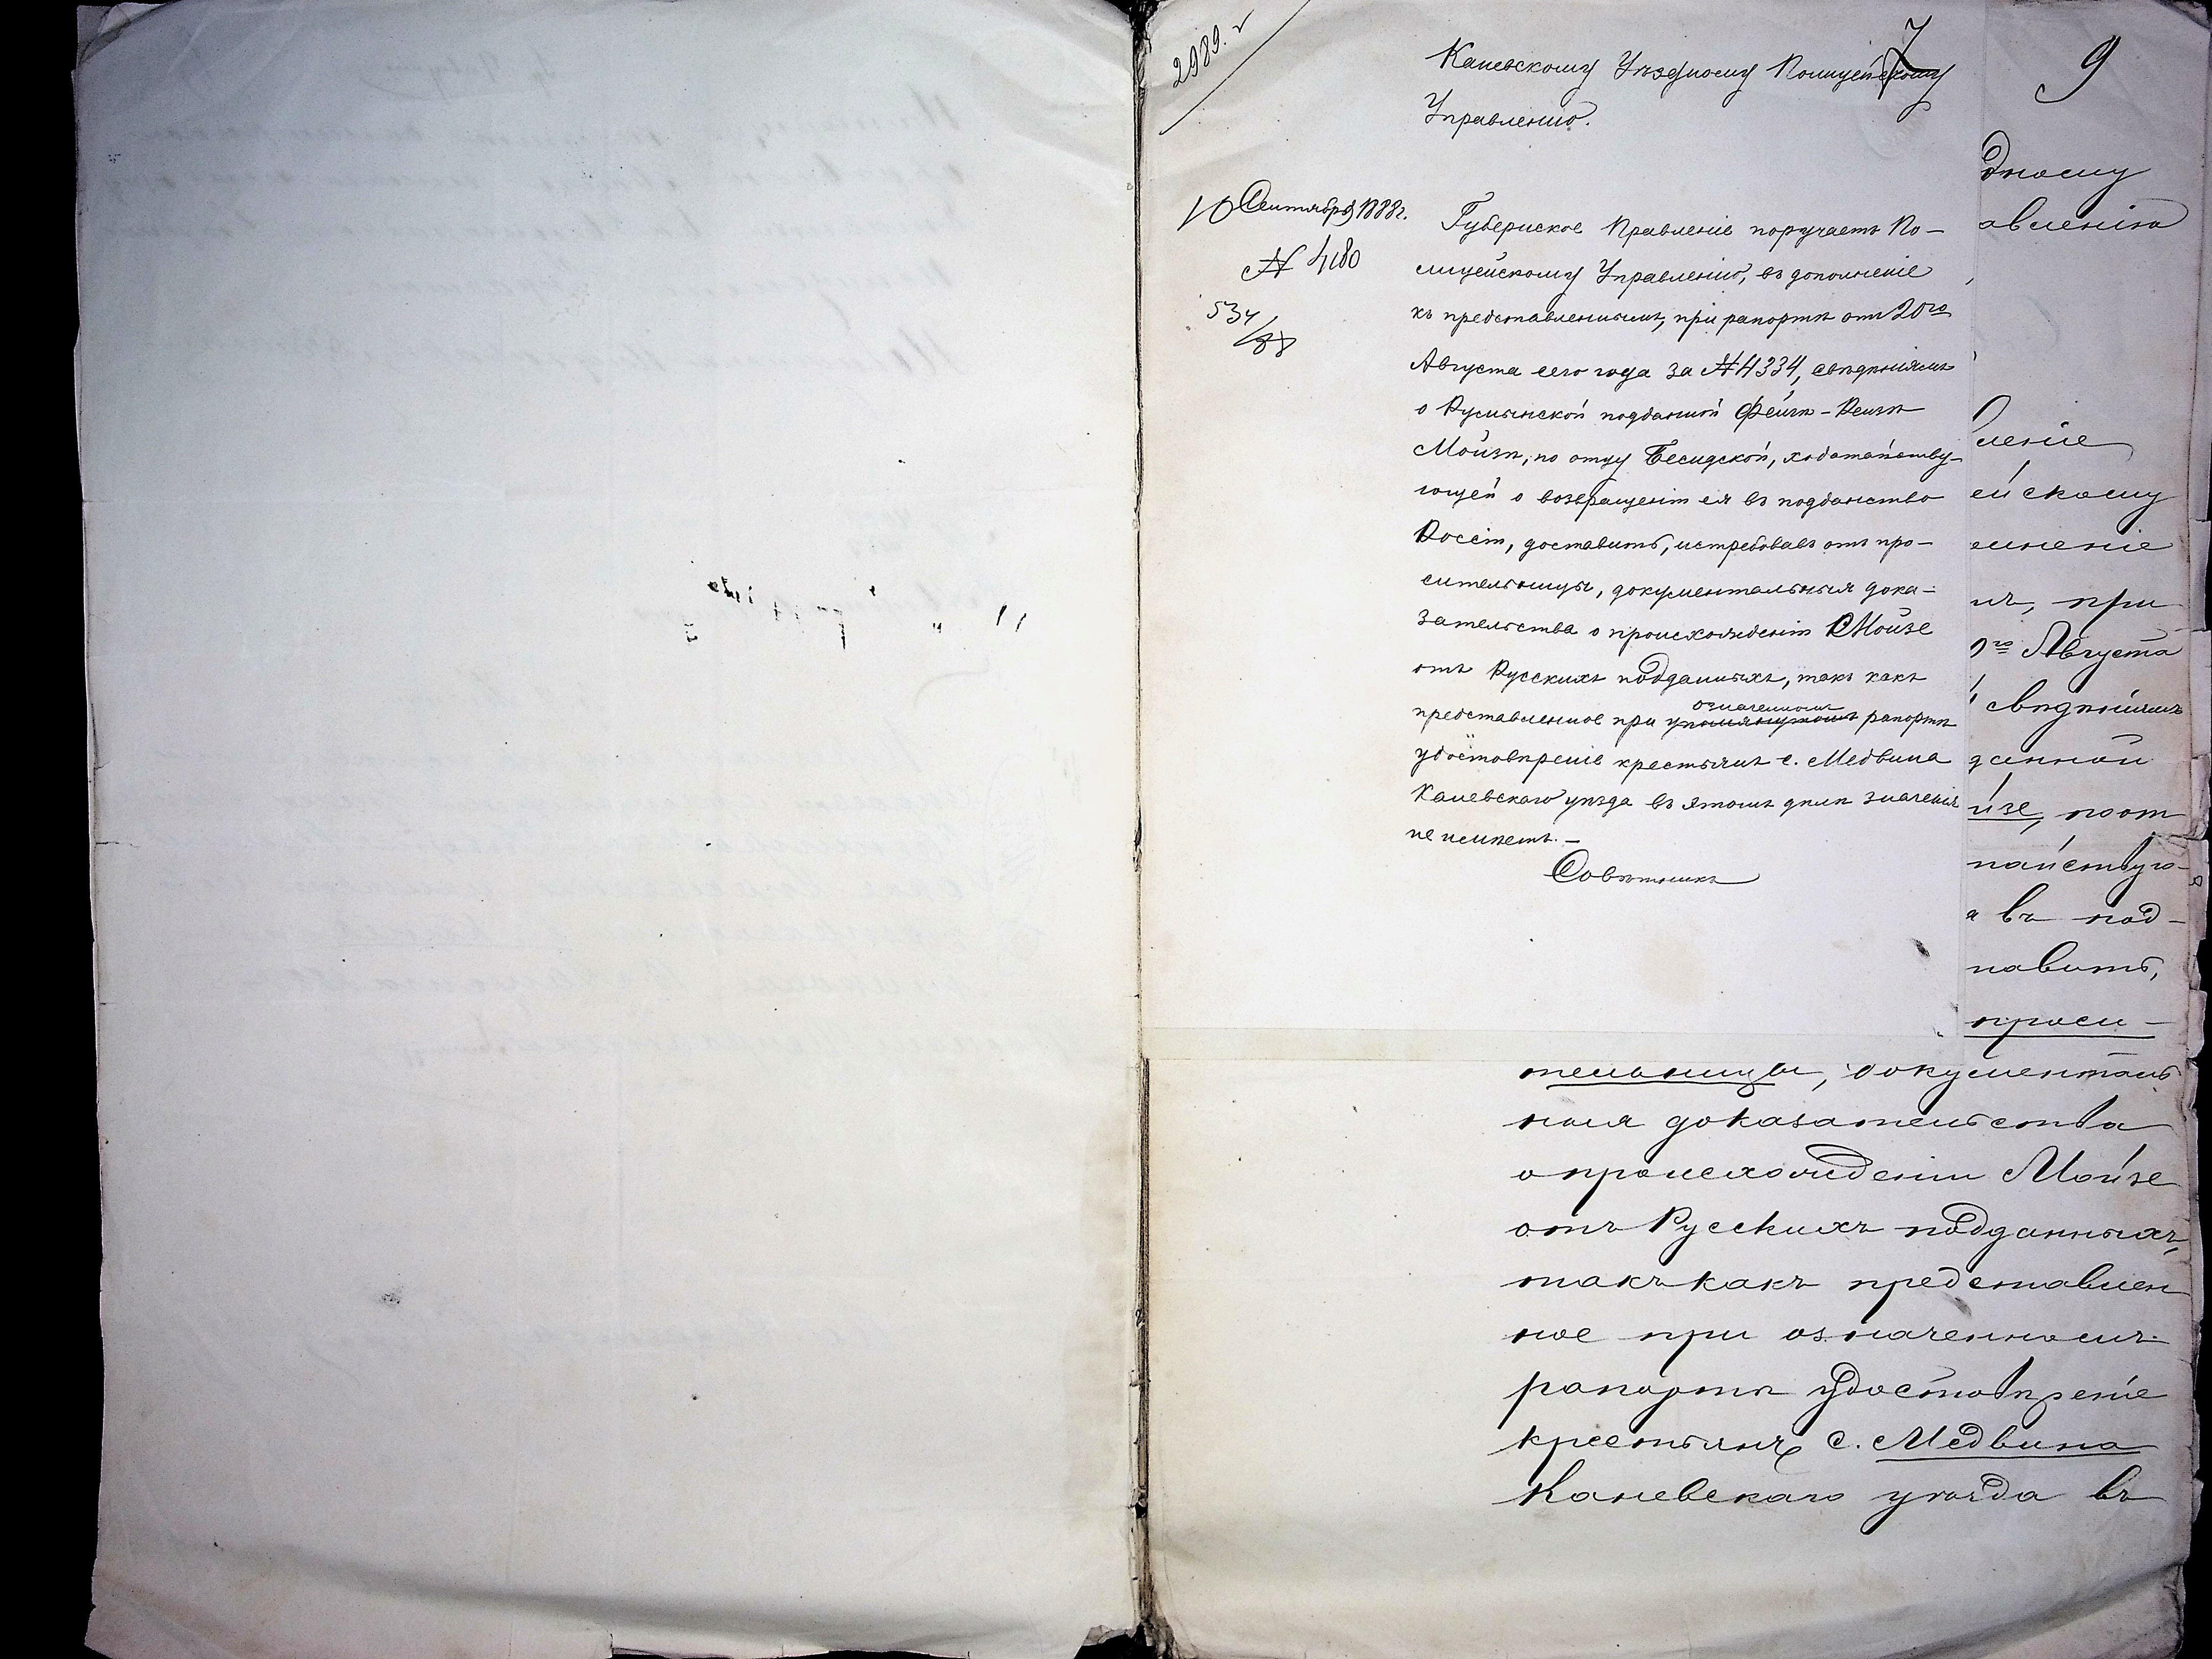 2989.
7
9
Каневскому Уѣздному Полицейскому
Управленію.
10 Сентября 1888 г.
N 4180
534/88
Губернское Правленіе поручаетъ По-
лицейскому Управленію, въ дополненіе
къ представленнымъ, при рапортѣ отъ 20го
Августа сего года за N 4334, свѣдѣніямъ
о Румынской подданной Фейгѣ-Рейзѣ
Мойзѣ, по отцу Бесидской, ходатайству-
ющей о возвращеніи ея въ подданство
Россіи, доставить, истребовавъ отъ про-
сительницы, документальныя дока-
зательства о происхожденіи Мойзе
отъ Русскихъ подданныхъ, такъ какъ
означенномъ
представленное при упомянутомъ рапортѣ
удостовѣреніе крестьянъ с. Медвина
Каневскаго уѣзда въ этомъ дѣлѣ значенія
не имѣетъ. —
Совѣтникъ
дному
авленію
леніе
ейскому
лненіе
мъ, при
0го Августа
свѣдѣніямъ
данной
йзе, по от
тайствую-
а въ под-
тавить,
проси-
тельницы, документаль
ныя доказательства
о происхожденіи Мойзе
отъ Русскихъ подданныхъ,
такъ какъ представлен
ное при означенномъ
рапортѣ удостовѣреніе
крестьянъ с. Медвина
Каневскаго уѣзда въ